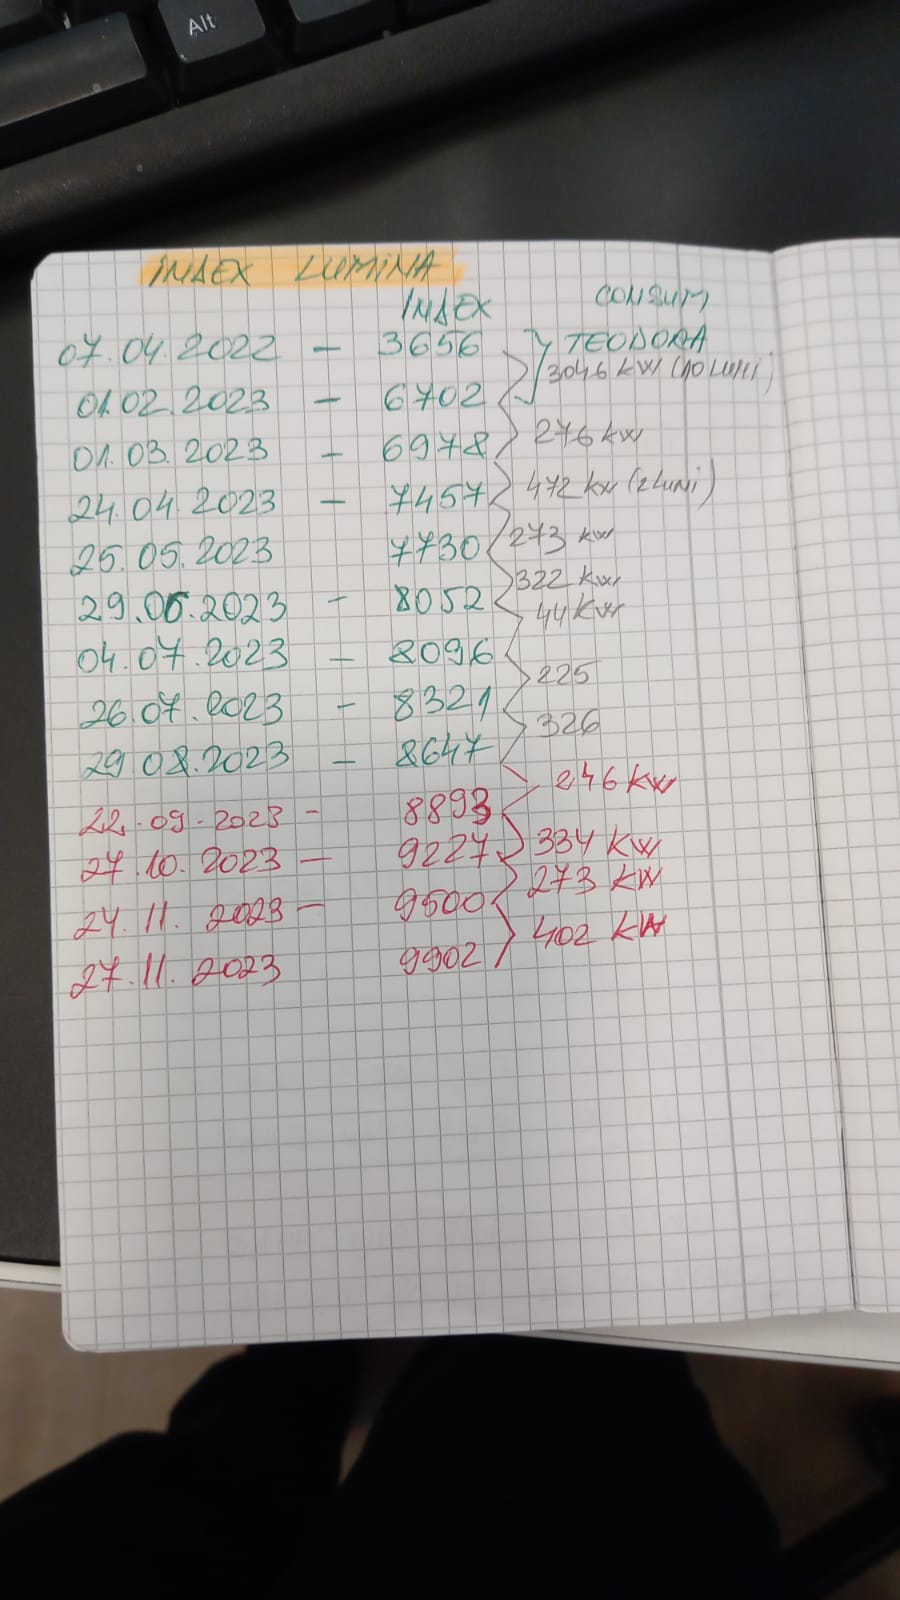 Alt
INDEX LUMINA
INDEX CONSUM
07.04.2022 - 3656 TEODORA
3046 KW (10 LUNI)
01.02.2023 - 6702
276 KW
01.03.2023 - 6978
472 KW (2 LUNI)
24.04.2023 - 7457
273 KW
25.05.2023 7730
322 KW
29.06.2023 - 8052
44 KW
04.07.2023 - 8096
225
26.07.2023 - 8321
326
29 08.2023 - 8647
246 KW
22.09.2023 - 8893
334 KW
27.10.2023 - 9227
273 KW
24.11.2023 - 9500
402 KW
27.11.2023 9902